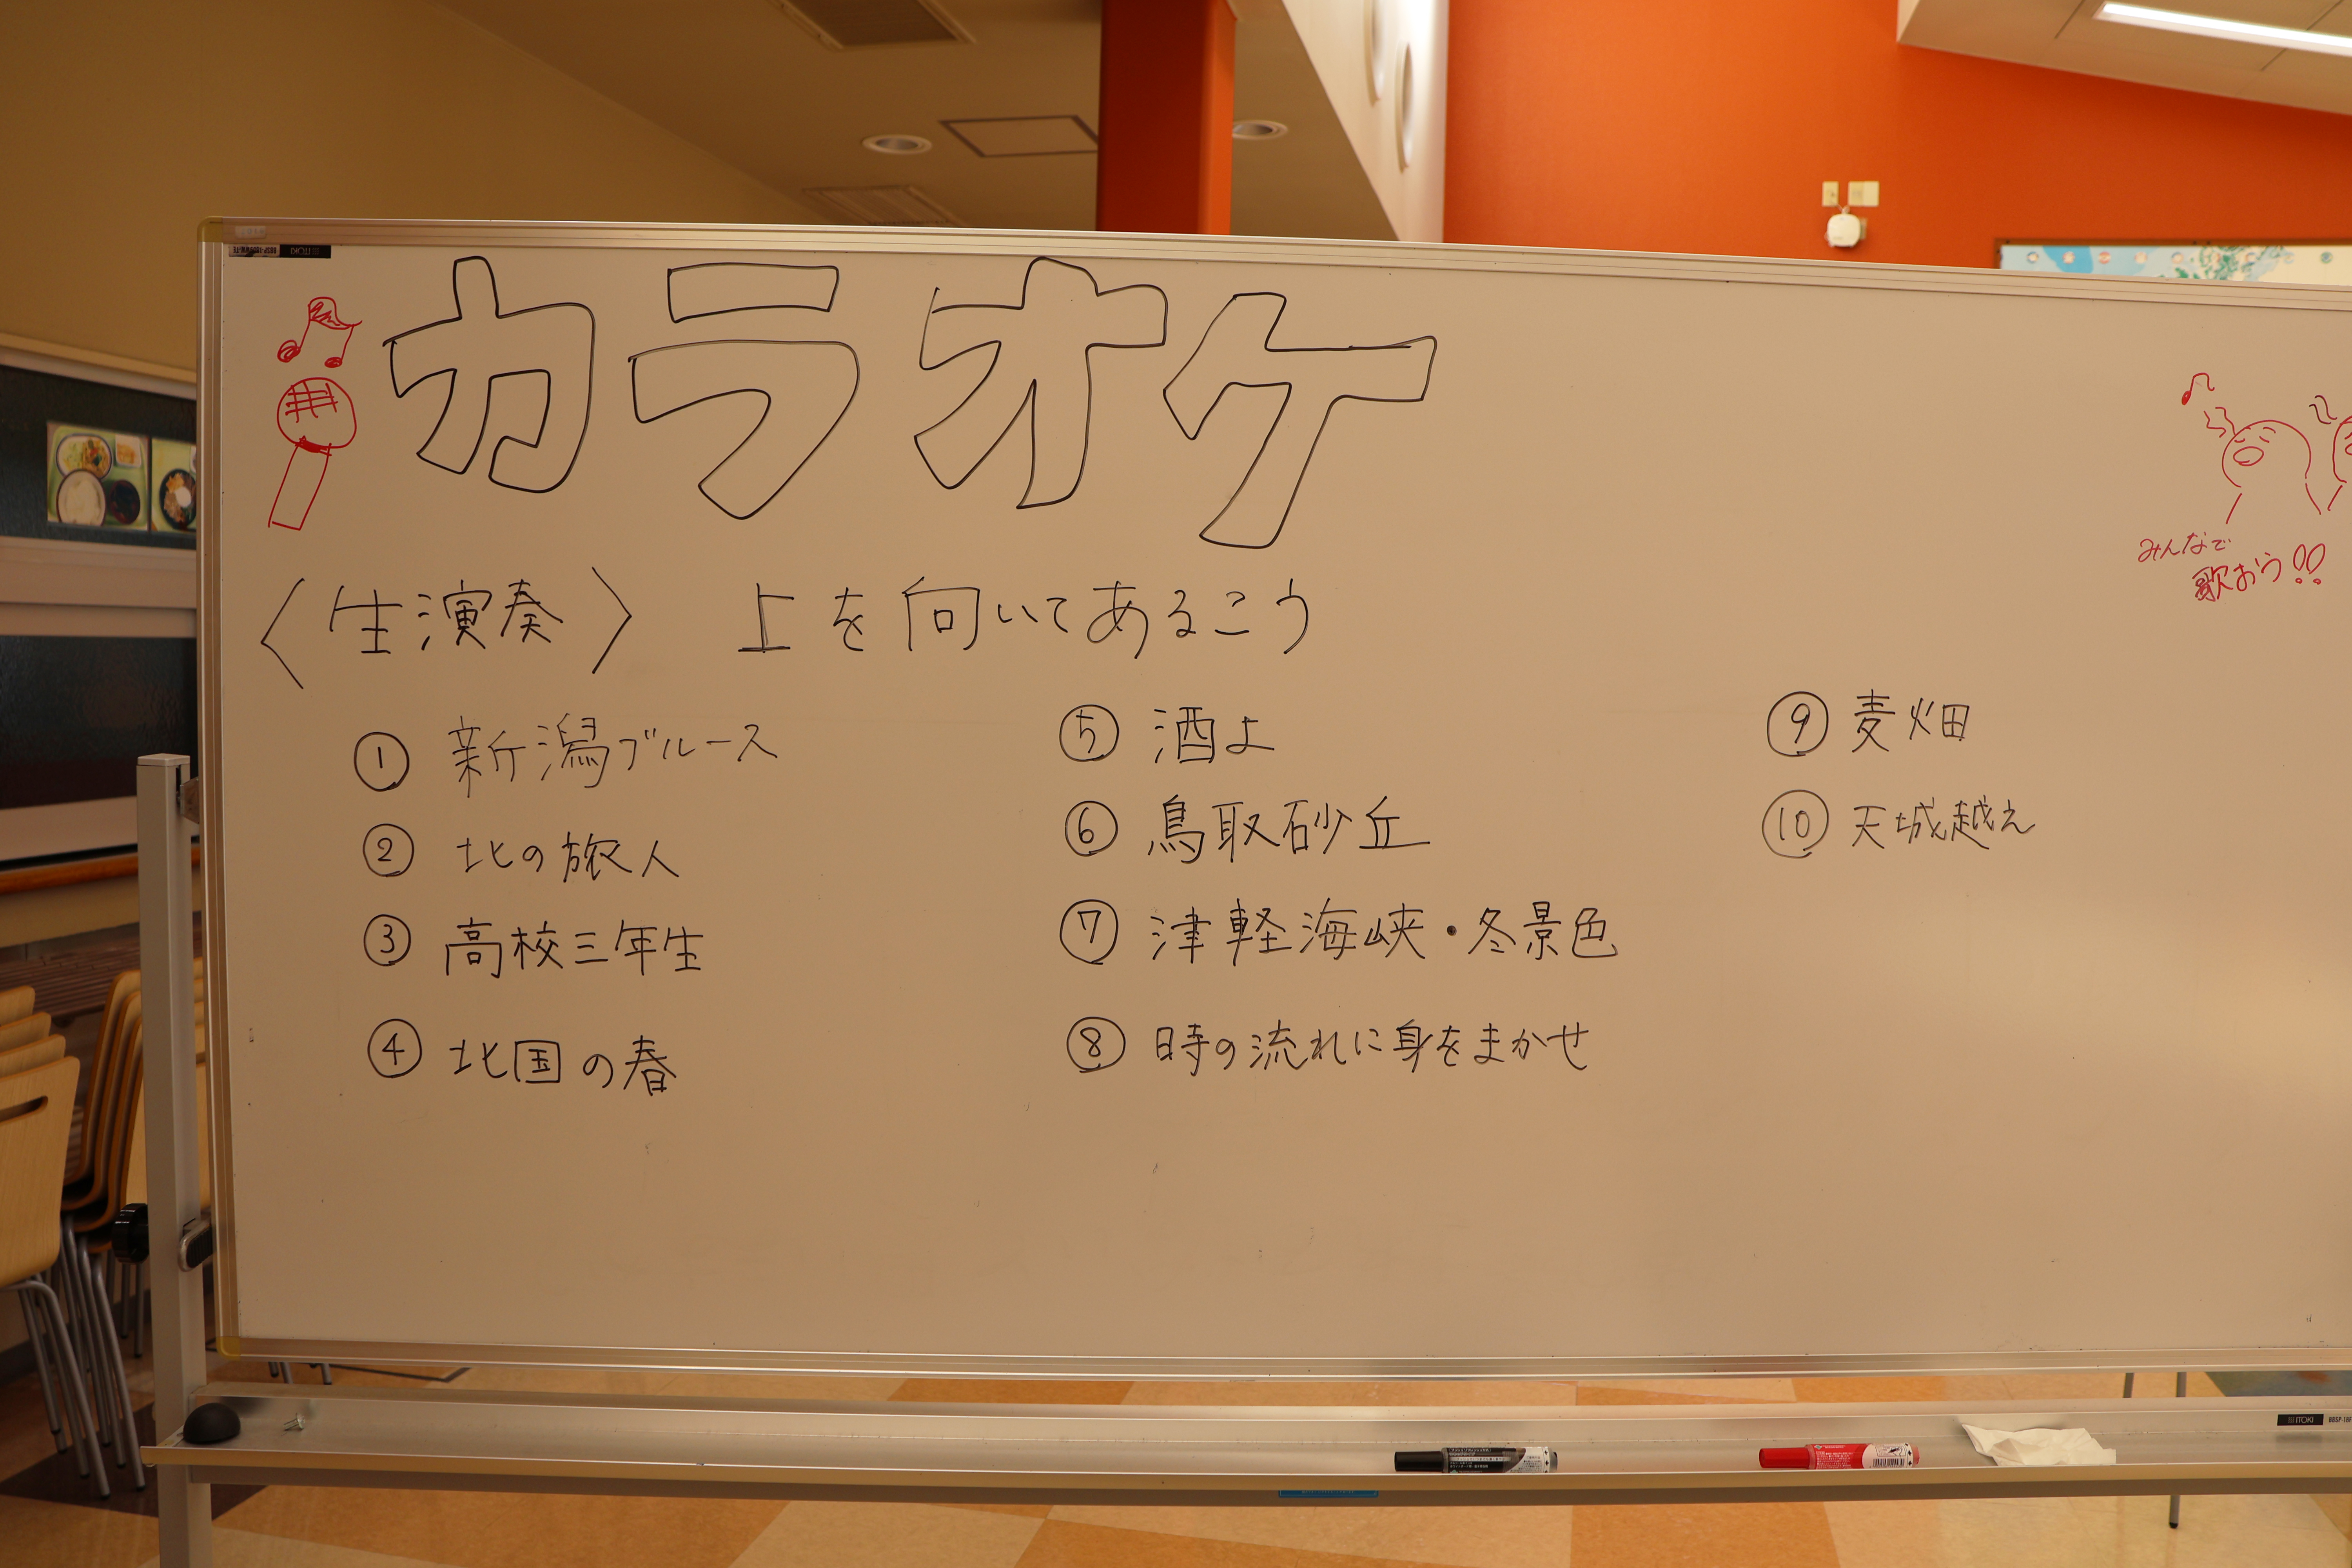 カラオケ
みんなで
歌おう!!
〈生演奏〉 上を向いてあるこう
① 新潟ブルース
② 北の旅人
③ 高校三年生
④ 北国の春
⑤ 酒よ
⑥ 鳥取砂丘
⑦ 津軽海峡・冬景色
⑧ 時の流れに身をまかせ
⑨ 麦畑
⑩ 天城越え
ITOKI
ITOKI